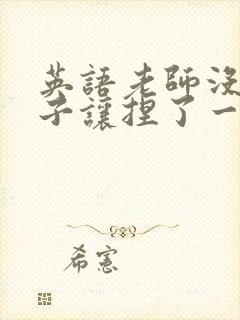 英語老師沒
子讓捏了一
希憲